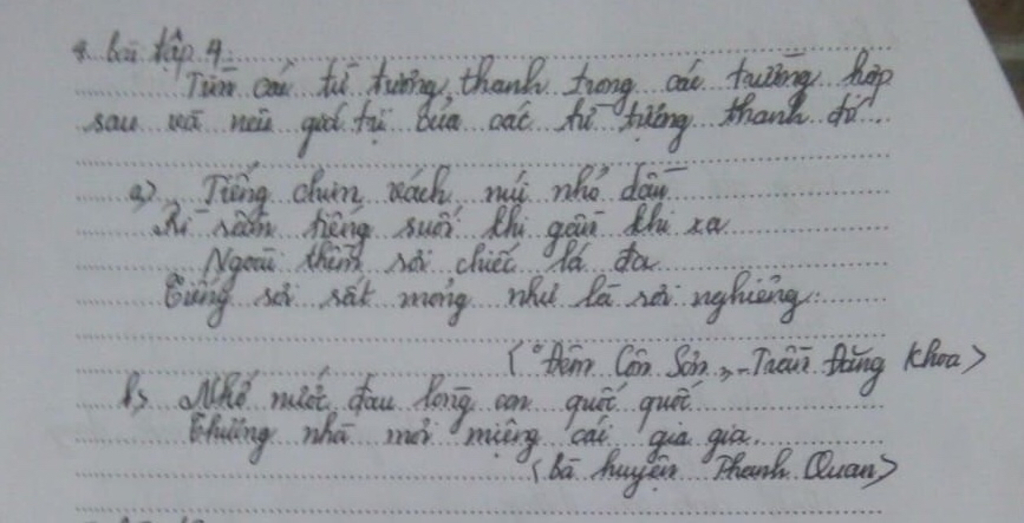 4. bài tập 4:
Tìm các từ tượng thanh trong các trường hợp
sau và nêu giá trị của các từ tượng thanh đó.
a) Tiếng chim vách núi nhỏ dần
Rì rầm tiếng suối khi gần khi xa
Ngoài thềm rơi chiếc lá đa
Tiếng rơi rất mỏng như là rơi nghiêng.
("Đêm Côn Sơn" - Trần Đăng Khoa)
b) Nhớ nước đau lòng con quốc quốc
Thương nhà mỏi miệng cái gia gia.
(Bà huyện Thanh Quan)